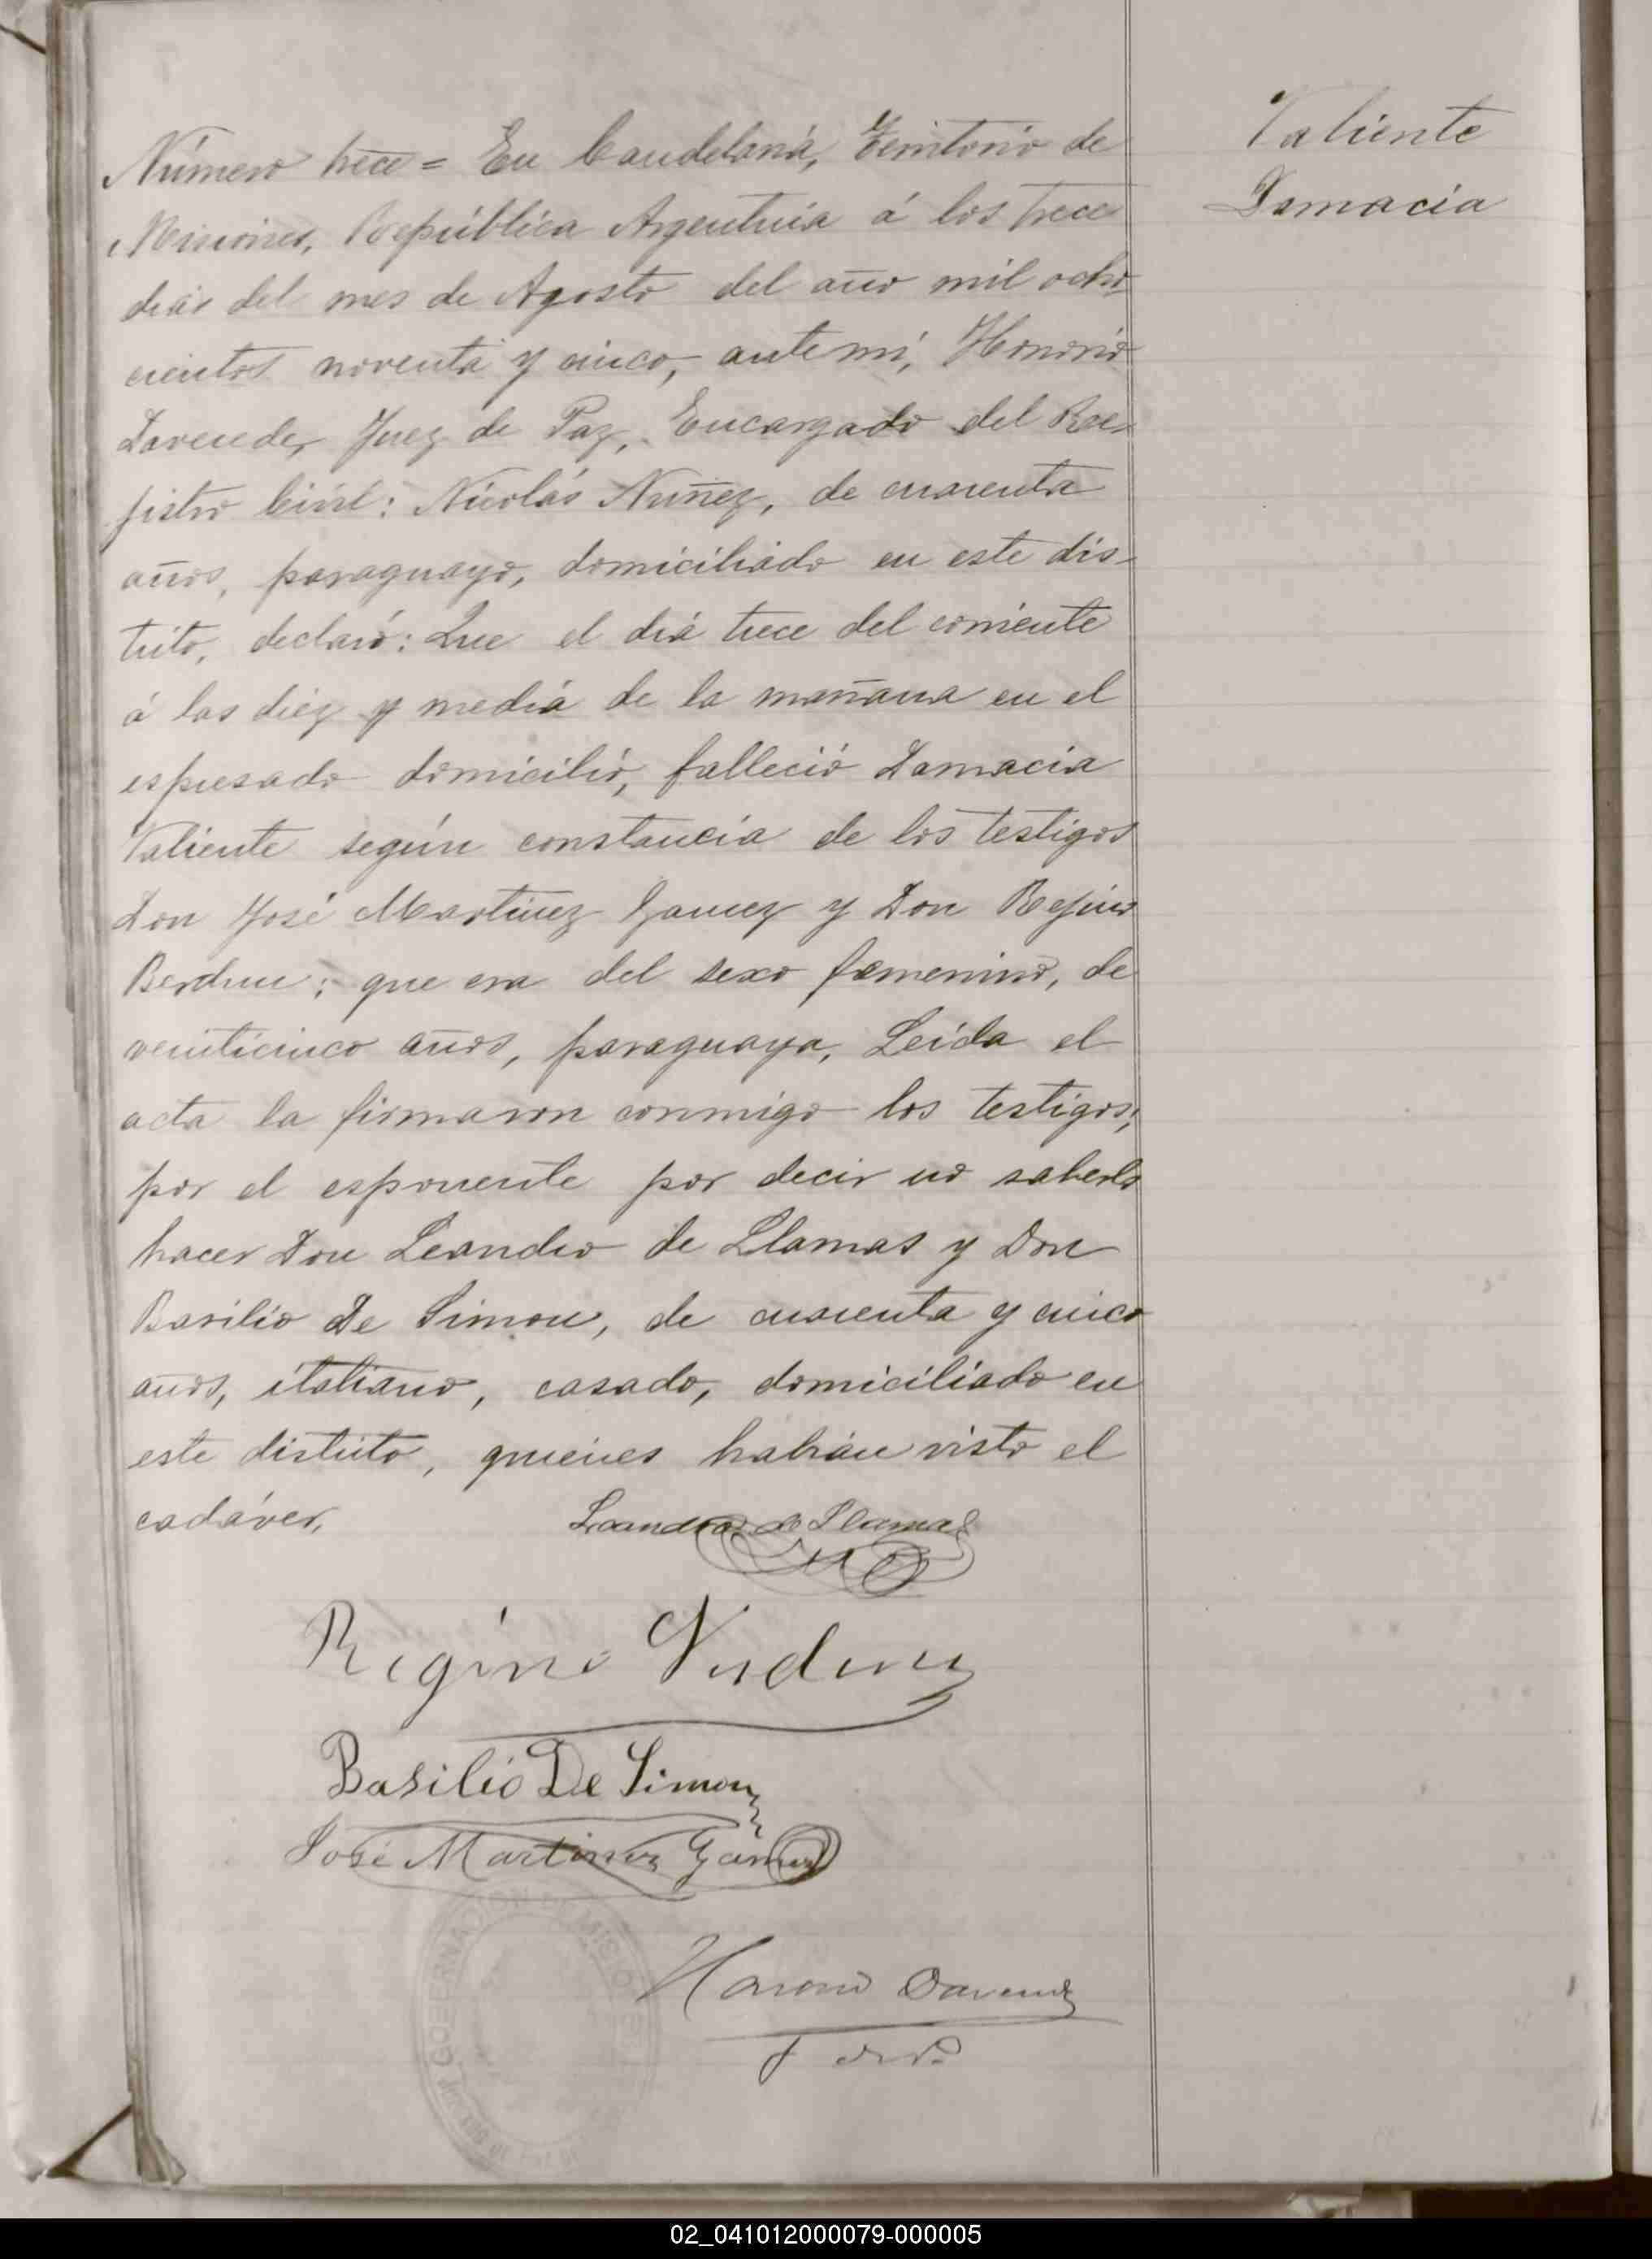 Valiente
Damacia
Número trece = En Candelaria, Territorio de
Misiones, República Argentina á los trece
dias del mes de Agosto del año mil ocho-
cientos noventa y cinco, ante mi, Honorio
Davender, Juez de Paz, Encargado del Re-
jistro Civil: Nicolás Nuñez, de cuarenta
años, paraguayo, domiciliado en este dis-
trito, declaró: Que el dia trece del corriente
á las diez y media de la mañana en el
espresado domicilio, falleció Damacia
Valiente según constancia de los testigos
Don José Martinez Gamez y Don Rejino
Berdun; que era del sexo femenino, de
veinticinco años, paraguaya, Leida el
acta la firmaron conmigo los testigos;
por el esponente por decir no saberlo
hacer Don Leandro de Llamas y Don
Basilio De Simon, de cuarenta y cinco
años, italiano, casado, domiciliado en
este distrito, quienes habian visto el
cadáver,
Leandro de Llamas
Regino Verdun
Basilio De Simon
José Martinez Gámez
GOBERNACION DE MISIONES
Honorio
02_041012000079-000005